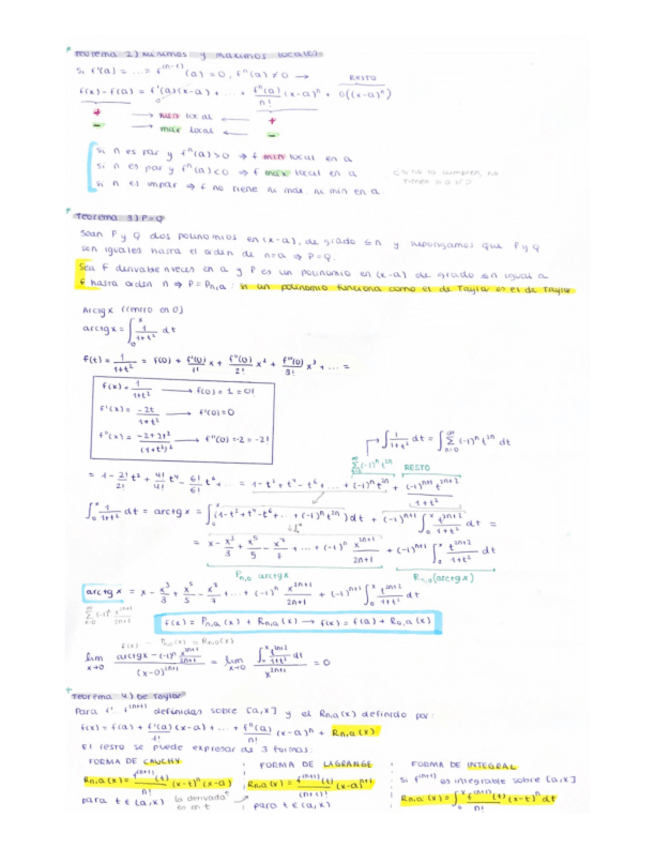 Teorema 2) Mínimos y máximos locales
Si f'(a) = ... = f^(n-1)(a) = 0, f^n(a) ≠ 0 →
RESTO
f(x) - f(a) = f'(a)(x-a) + ... + f^n(a)/n! (x-a)^n + o((x-a)^n)
+ → min local ← +
- → max local ← -
si n es par y f^n(a) > 0 ⇒ f min local en a
si n es par y f^n(a) < 0 ⇒ f max local en a
si n es impar ⇒ f no tiene ni max, ni min en a
Teorema 3) P=Q
Sean P y Q dos polinomios en (x-a), de grado ≤ n y supongamos que P y Q
son iguales hasta el orden de n=a ⇒ P=Q.
Sea f derivable n veces en a y P es un polinomio en (x-a) de grado ≤ n igual a
f hasta orden n ⇒ P = Pn,a : si un polinomio funciona como el de Taylor es el de Taylor
Arctgx (centro en 0)
arctgx = ∫₀ˣ 1/(1+t²) dt
f(t) = 1/(1+t²) = f(0) + f'(0)/1! x + f''(0)/2! x² + f'''(0)/3! x³ + ... =
f(x) = 1/(1+t²) → f(0) = 1 = 0!
f'(x) = -2t/(1+t²) → f'(0) = 0
f''(x) = (-2+3t²)/(1+t²)³ → f''(0) = -2 = -2!
∫ 1/(1+t²) dt = ∫ Σ (-1)^n t^2n dt
Σ (-1)^n t^2n RESTO
= 1 - 2!/2! t² + 4!/4! t⁴ - 6!/6! t⁶ ... = 1 - t² + t⁴ - t⁶ + ... + (-1)^n t^2n + (-1)^(n+1) t^(2n+2)/(1+t²)
∫₀ˣ 1/(1+t²) dt = arctgx = ∫₀ˣ (1 - t² + t⁴ - t⁶ + ... + (-1)^n t^2n) dt + (-1)^(n+1) ∫₀ˣ t^(2n+2)/(1+t²) dt =
= x - x³/3 + x⁵/5 - x⁷/7 + ... + (-1)^n x^(2n+1)/(2n+1) + (-1)^(n+1) ∫₀ˣ t^(2n+2)/(1+t²) dt
Pn,0 arctgx Rn,0 (arctgx)
arctgx = x - x³/3 + x⁵/5 - x⁷/7 + ... + (-1)^n x^(2n+1)/(2n+1) + (-1)^(n+1) ∫₀ˣ t^(2n+2)/(1+t²) dt
Σ (-1)^n x^(2n+1)/(2n+1)
f(x) = Pn,a (x) + Rn,a (x) → f(x) = f(a) + R0,a (x)
f(x) - Pn,0(x) = Rn,0(x)
lim x→0 (arctgx - (-1)^n x^(2n+1)/(2n+1))/(x-0)^(2n+1) = lim x→0 (∫₀ˣ t^(2n+2)/(1+t²) dt)/x^(2n+1) = 0
Teorema 4) De Taylor
Para f'...f^(n+1) definidas sobre [a,x] y el Rn,a(x) definido por:
f(x) = f(a) + f'(a)/1! (x-a) + ... + f^n(a)/n! (x-a)^n + Rn,a(x)
El resto se puede expresar de 3 formas:
FORMA DE CAUCHY
Rn,a(x) = f^(n+1)(t)/n! (x-t)^n (x-a)
para t ∈ (a,x)
la derivada es en t
FORMA DE LAGRANGE
Rn,a(x) = f^(n+1)(t)/(n+1)! (x-a)^(n+1)
para t ∈ (a,x)
FORMA DE INTEGRAL
Si f^(n+1) es integrable sobre [a,x]
Rn,a(x) = ∫ₐˣ f^(n+1)(t)/n! (x-t)^n dt